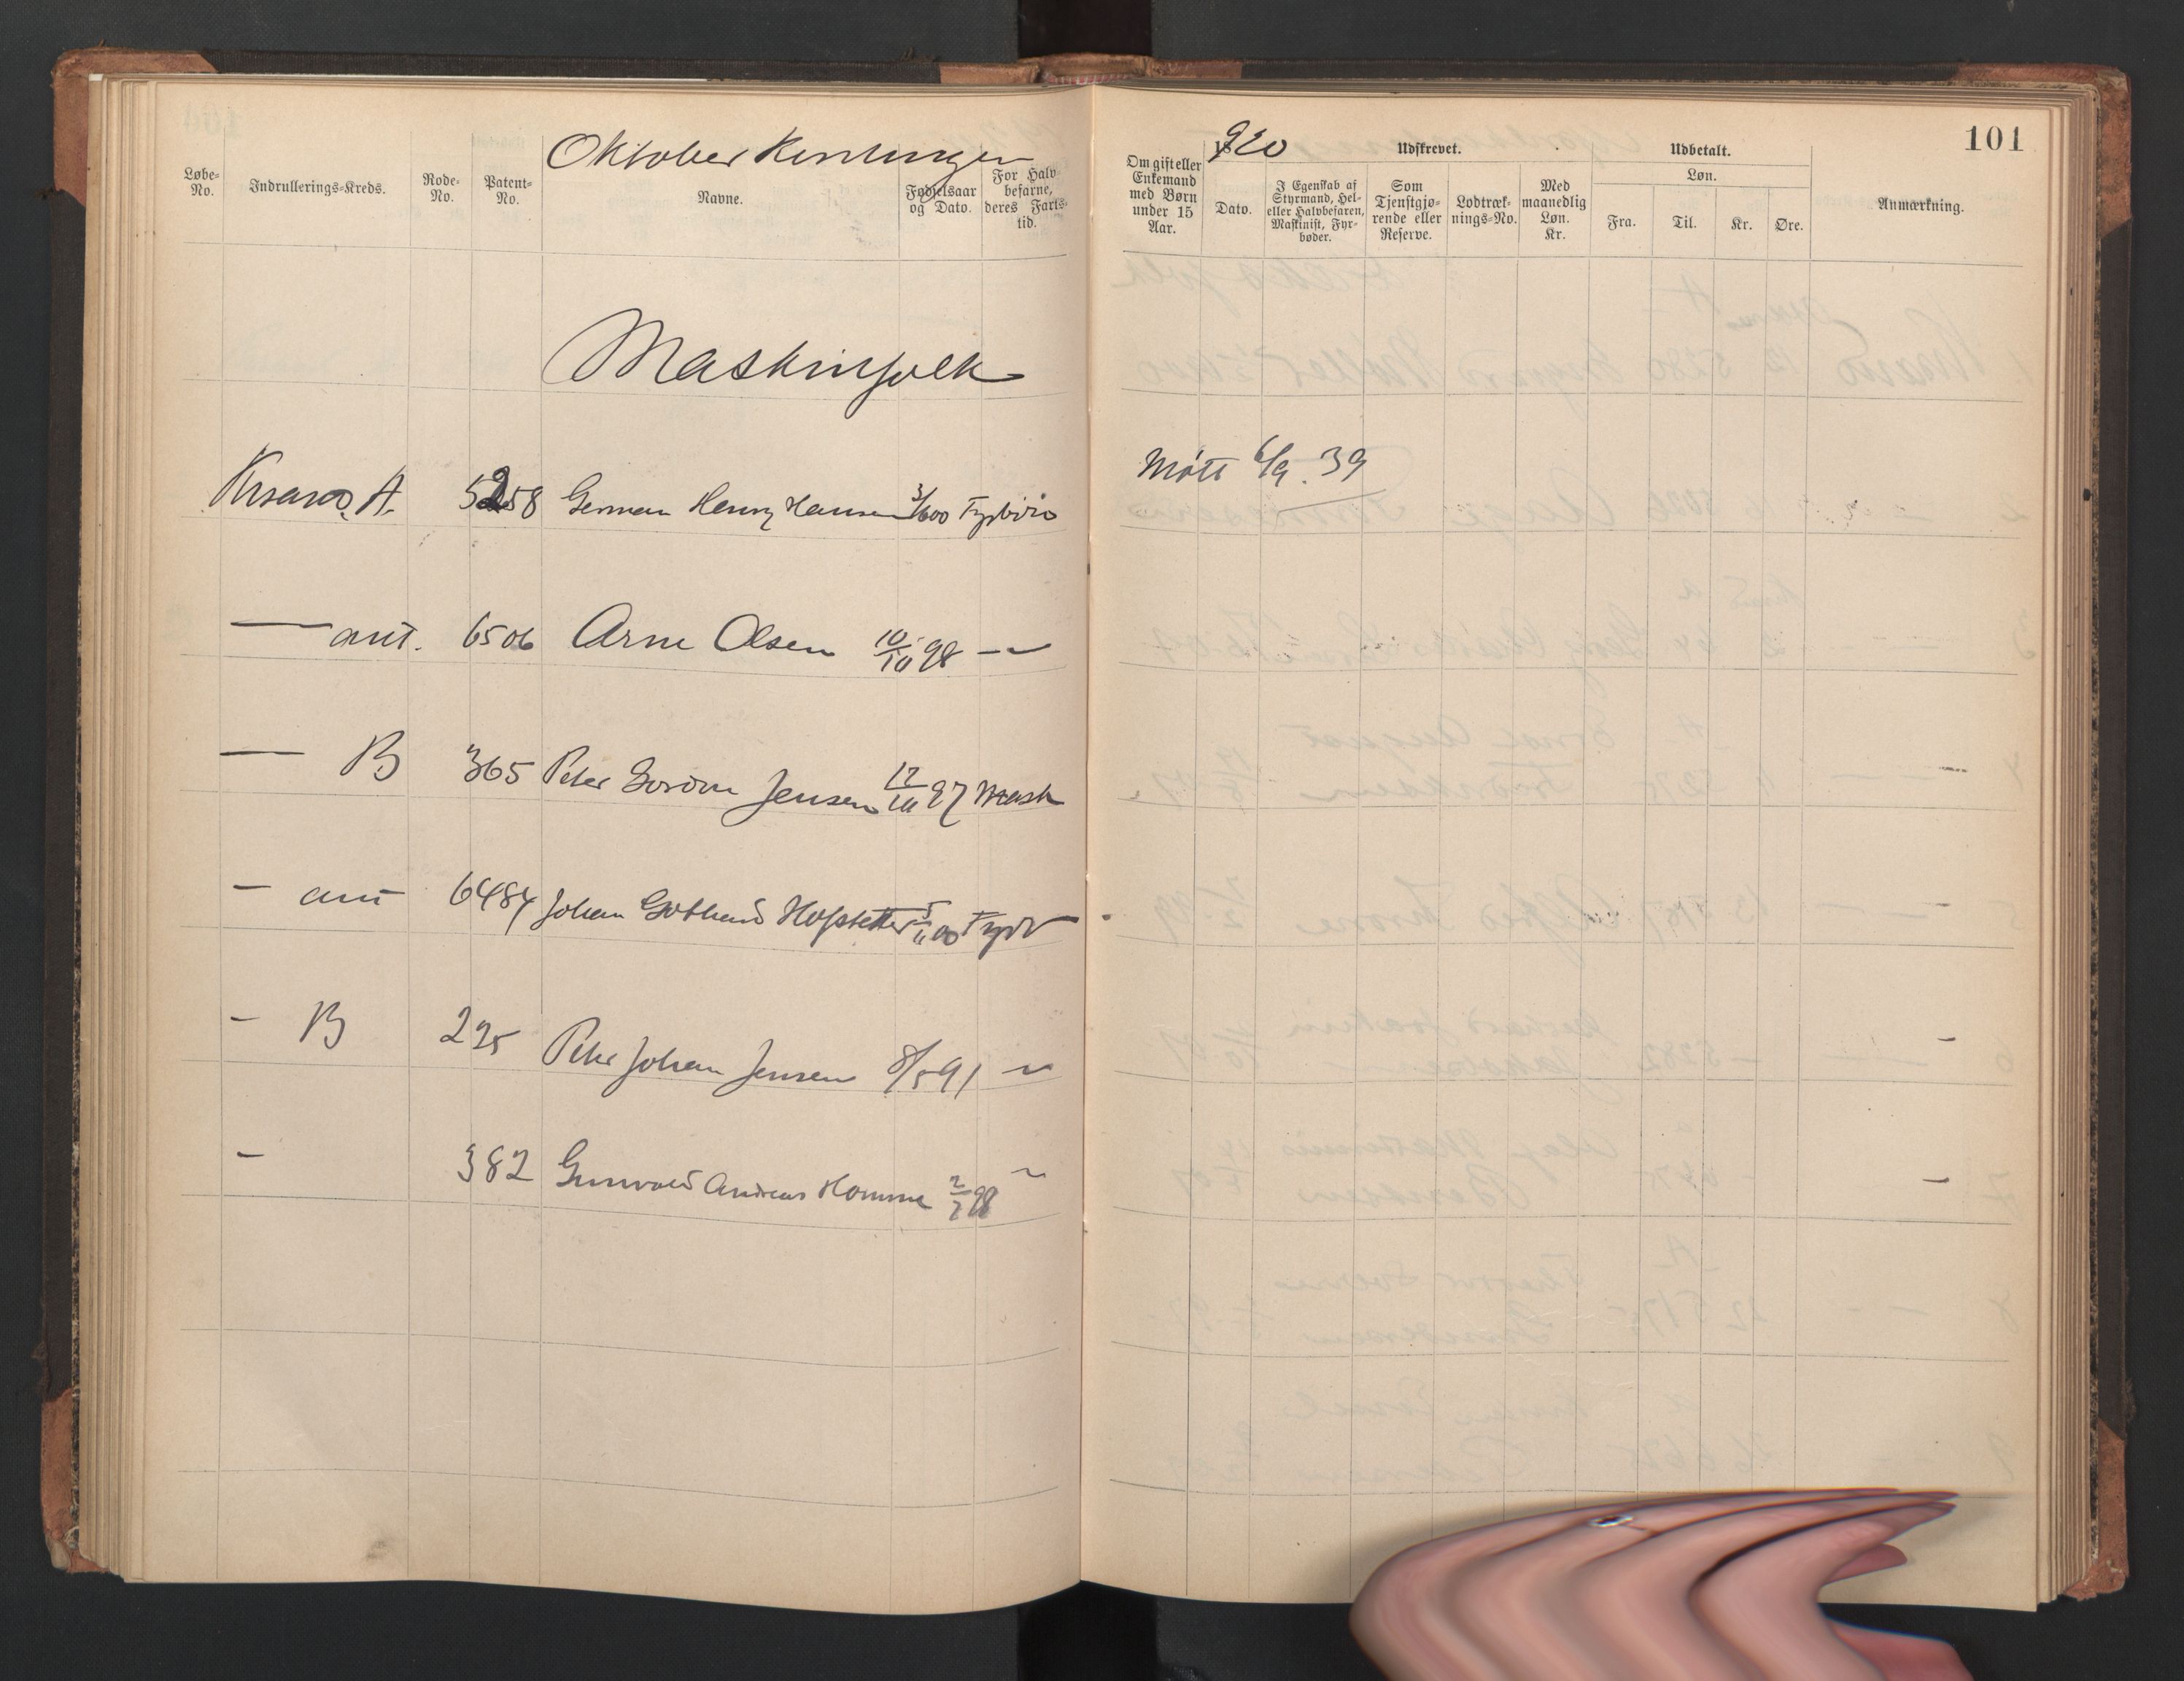 101
Oktober
920
Løbe-No.
Indrullerings-Kreds.
Rode-No.
Patent-No.
Navne.
Fødselsaar og Dato.
For Halvbefarne, deres Fartstid.
Om gift eller Enkemand med Børn under 15 Aar.
Dato.
Udskrevet.
I Egenskab af Styrmand, Hel- eller Halvbefaren, Maskinist, Fyrbøder.
Som Tjenstgjørende eller Reserve.
Lodtræknings-No.
Med maanedlig Løn. Kr.
Udbetalt.
Løn.
Fra.
Til.
Kr.
Øre.
Anmærkning.
Maskinfolk
Krsand. A. 5258 German Henry Hansen 3/6 00 Møtt 6/9. 39
— ant. 6506 Arne Olsen 10/10 98 —
— B 365 Peter Jensen 12/10 97 Mask
— ant 6484 Johan Gothard Hofstetter 5/11 00 Fyrb
- B 225 Peter Johan Jensen 8/5 91
- 382 Gunvald Andreas Homme 2/7 98